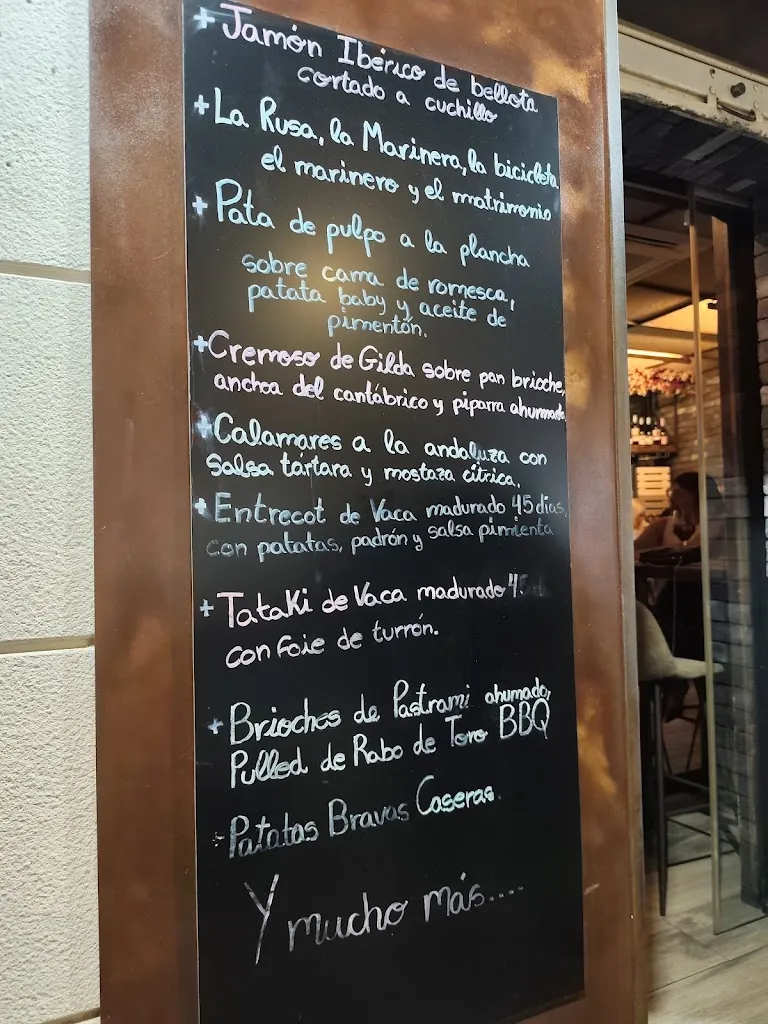 + Jamón Ibérico de bellota
cortado a cuchillo
+ La Rusa, la Marinera, la bicicleta
el marinero y el matrimonio
+ Pata de pulpo a la plancha
sobre cama de romesca,
patata baby y aceite de
pimentón.
+ Cremoso de Gilda sobre pan brioche,
anchoa del cantábrico y piparra ahumada
+ Calamares a la andaluza con
salsa tártara y mostaza cítrica.
+ Entrecot de Vaca madurado 45 días,
con patatas, padrón y salsa pimienta
+ Tataki de Vaca madurado 45
con foie de turrón.
+ Brioches de Pastrami ahumado,
Pulled de Rabo de Toro BBQ
- Patatas Bravas Caseras.
Y mucho más....